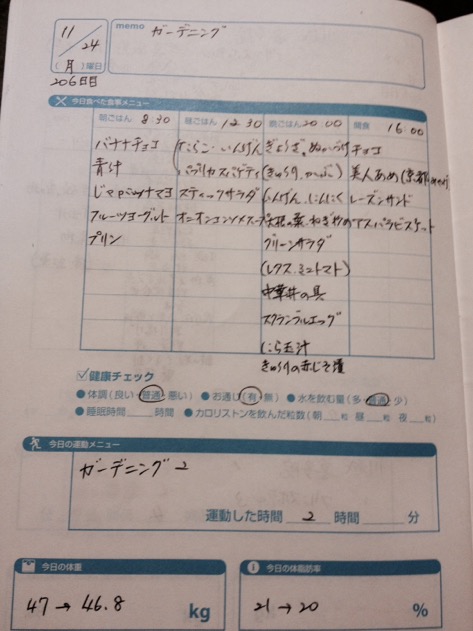 11/24
(月)曜日
206日目
memo ガーデニング
今日食べた食事メニュー
朝ごはん 8:30
バナナチョコ
青汁
フルーツヨーグルト
プリン
昼ごはん 12:30
(たらこ・いんげん
パプリカスパゲティ
スティックサラダ
オニオンコンソメスープ
晩ごはん 20:00
ぎょうざ、ぬか漬け
(きゅうり、かぶ)
いんげん、にんにく
グリーンサラダ
(レタス・ミニトマト)
中華丼の具
スクランブルエッグ
にら玉汁
きゅうりの赤じそ漬
間食 16:00
チョコ
美人あめ(京都
レーズンサンド
アスパラビスケット
健康チェック
●体調(良い・普通・悪い) ●お通じ(有・無) ●水を飲む量(多・普通・少)
●睡眠時間 時間 ●カロリストンを飲んだ粒数(朝 粒 昼 粒 夜 粒)
今日の運動メニュー
ガーデニング2
運動した時間 2 時間 分
今日の体重
47→46.8 kg
今日の体脂肪率
21→20 %